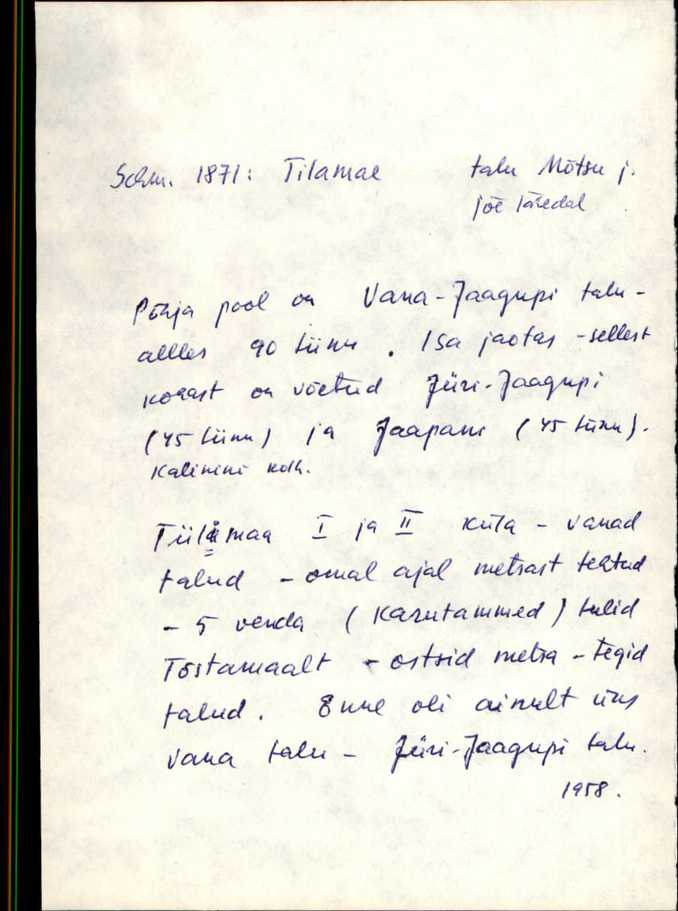 Schm. 1871: Tilamae talu Mõtsu j.
jõe läredal
Põhja pool on Vana-Jaagupi talu -
allles 90 tiinu. Isa jaotas - sellest
kohast on võetud Jüri-Jaagupi
(45 tiinu) ja Jaapani (45 tiinu).
Kalinini kolh.
Tiilamaa I ja II küla - vanad
talud - omal ajal metsast tehtud
- 5 venda (Karutammed) tulid
Tõstamaalt - ostsid metsa - tegid
talud. Enne oli ainult üks
vana talu - Jüri-Jaagupi talu.
1958.